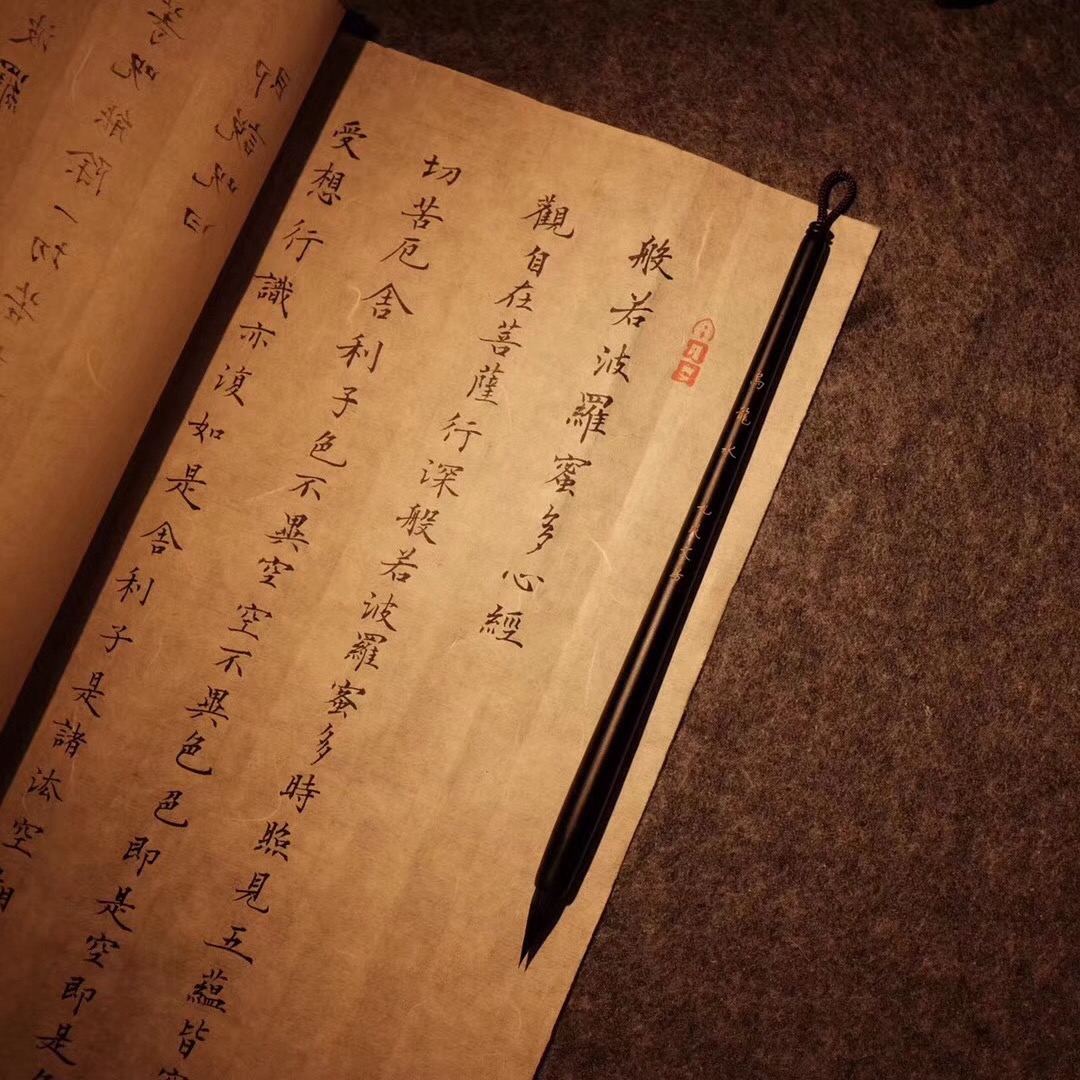 般若波羅蜜多心經
觀自在菩薩行深般若波羅蜜多時照見五蘊皆空
切苦厄舍利子色不異空空不異色色即是空即是
受想行識亦復如是舍利子是諸法空相
即說呪曰
等呪能除一切苦
波羅